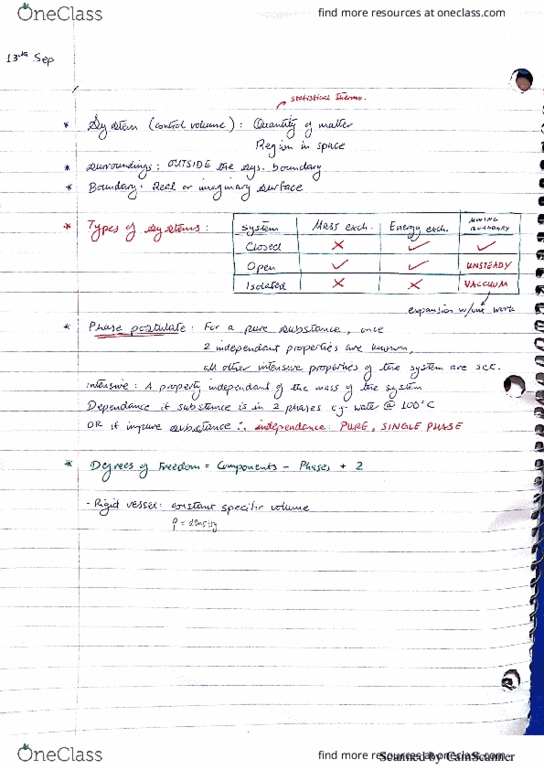 OneClass
find more resources at oneclass.com
13th Sep
statistical thermo.
* System (control volume) : Quantity of matter
Region in space
* Surroundings : OUTSIDE the sys. boundary
* Boundary : Real or imaginary surface
* Types of systems :
System | Mass exch. | Energy exch. | MOVING BOUNDARY
Closed | ✗ | ✓ | ✓
Open | ✓ | ✓ | UNSTEADY
Isolated | ✗ | ✗ | VACCUUM
expansion w/out work
* Phase postulate : For a pure substance, once
2 independant properties are known,
all other intensive properties of the system are set.
intensive : A property independant of the mass of the system
Dependance if substance is in 2 phases eg- water @ 100°C
OR if impure substance ∴ independence : PURE, SINGLE PHASE
* Degrees of Freedom = Components - Phases + 2
- Rigid vessel : constant specific volume
ρ = density
OneClass
find more resources at oneclass.com
Scanned by CamScanner